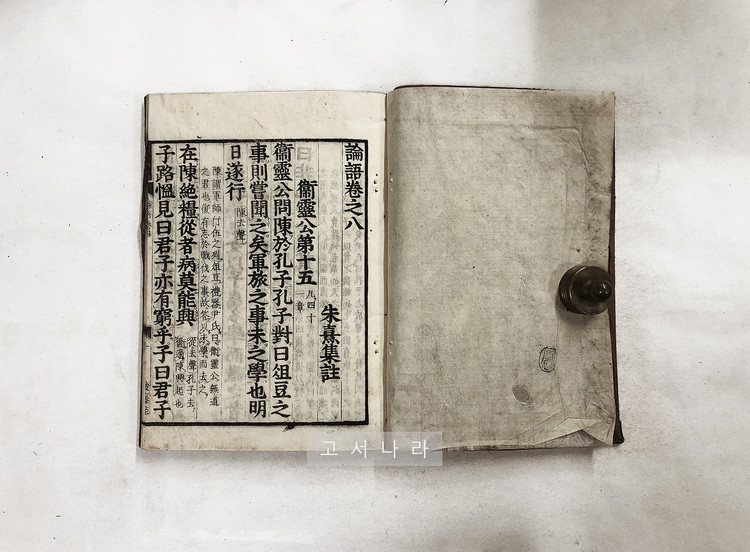 論語卷之八
朱熹集註
衞靈公第十五 凡四十一章
衞靈公問陳於孔子孔子對曰俎豆之
事則嘗聞之矣軍旅之事未之學也明
日遂行 陳去聲
陳謂軍師行伍之列俎豆禮器尹氏曰衞靈公無道
之君也復有志於戰伐之事故答以未學而去之
在陳絶糧從者病莫能興 從去聲孔子去衞適陳興起也
子路慍見曰君子亦有窮乎子曰君子
고서나라